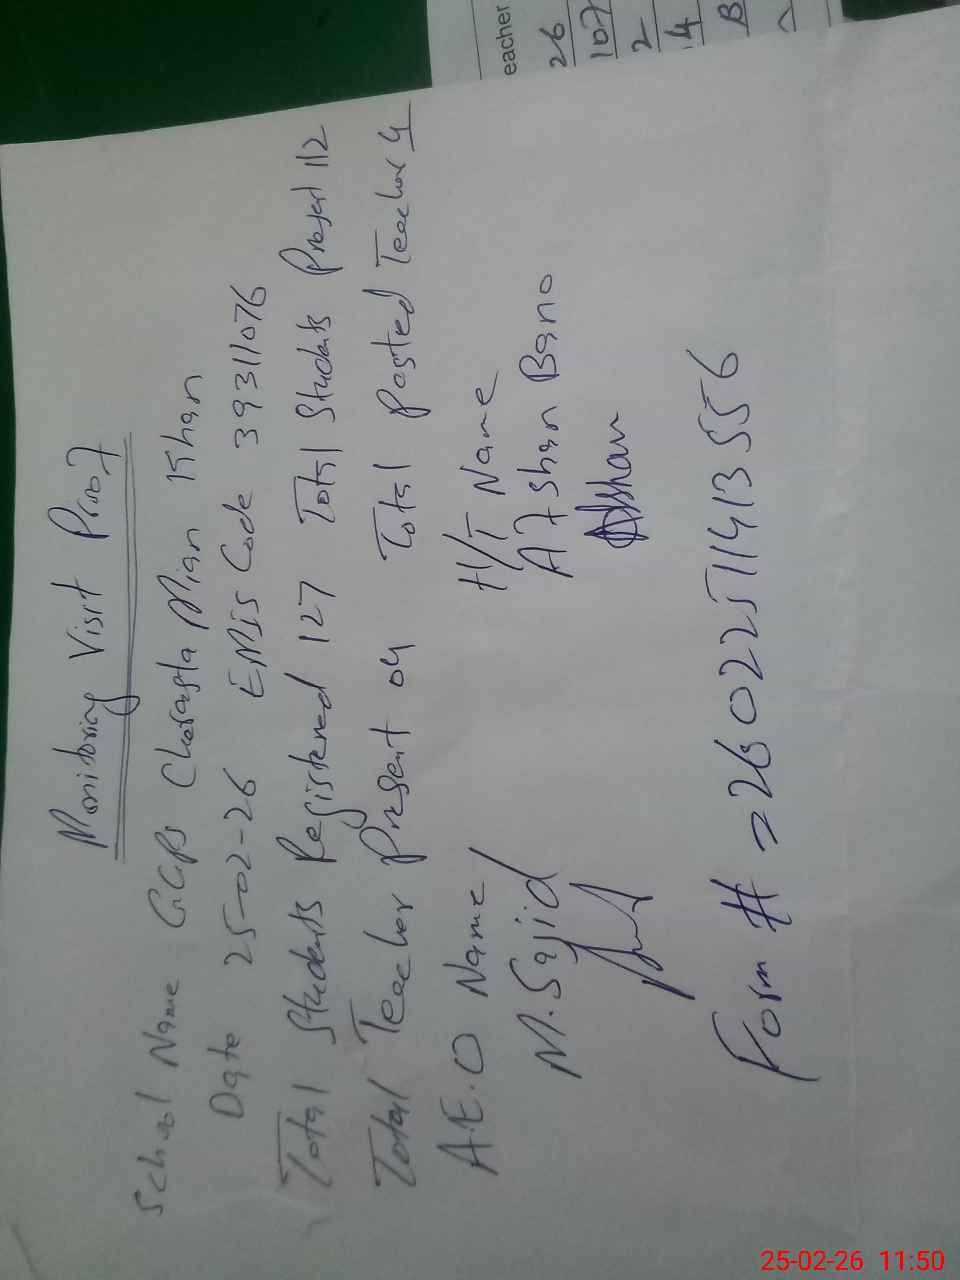 Monitoring Visit Proof
School Name GGPS Charagta Mian Khan
Date 25-02-26 EMIS Code 39311076
Total Students Registered 127 Total Students Present 112
Total Teacher Present 04 Total Posted Teacher 4
A.E.O Name H/T Name
M. Sajid Afshan Bano
Afshan
Form # 26022511413556
eacher
26
107
2
4
B
25-02-26 11:50